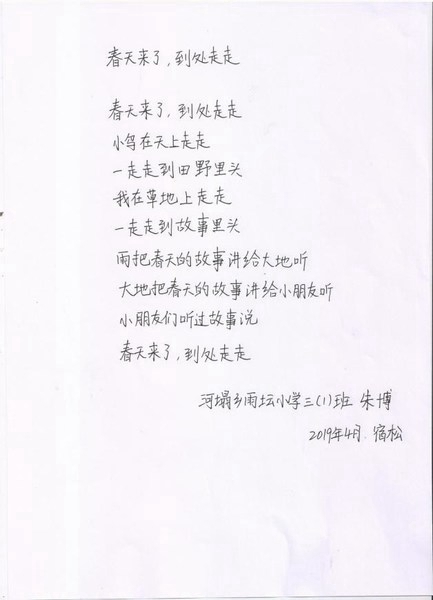 春天来了，到处走走
春天来了，到处走走
小鸟在天上走走
一走走到田野里头
我在草地上走走
一走走到故事里头
雨把春天的故事讲给大地听
大地把春天的故事讲给小朋友听
小朋友们听过故事说
春天来了，到处走走
河塌乡雨坛小学三(1)班 朱博
2019年4月 宿松